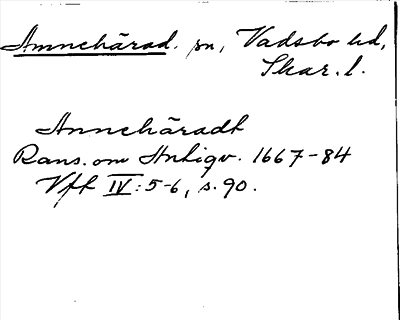 Amnehärad. sn, Vadsbo hd,
Skar. l.
Annehäradt
Rans. om Antiqv. 1667-84
Vft IV: 5-6, s. 90.